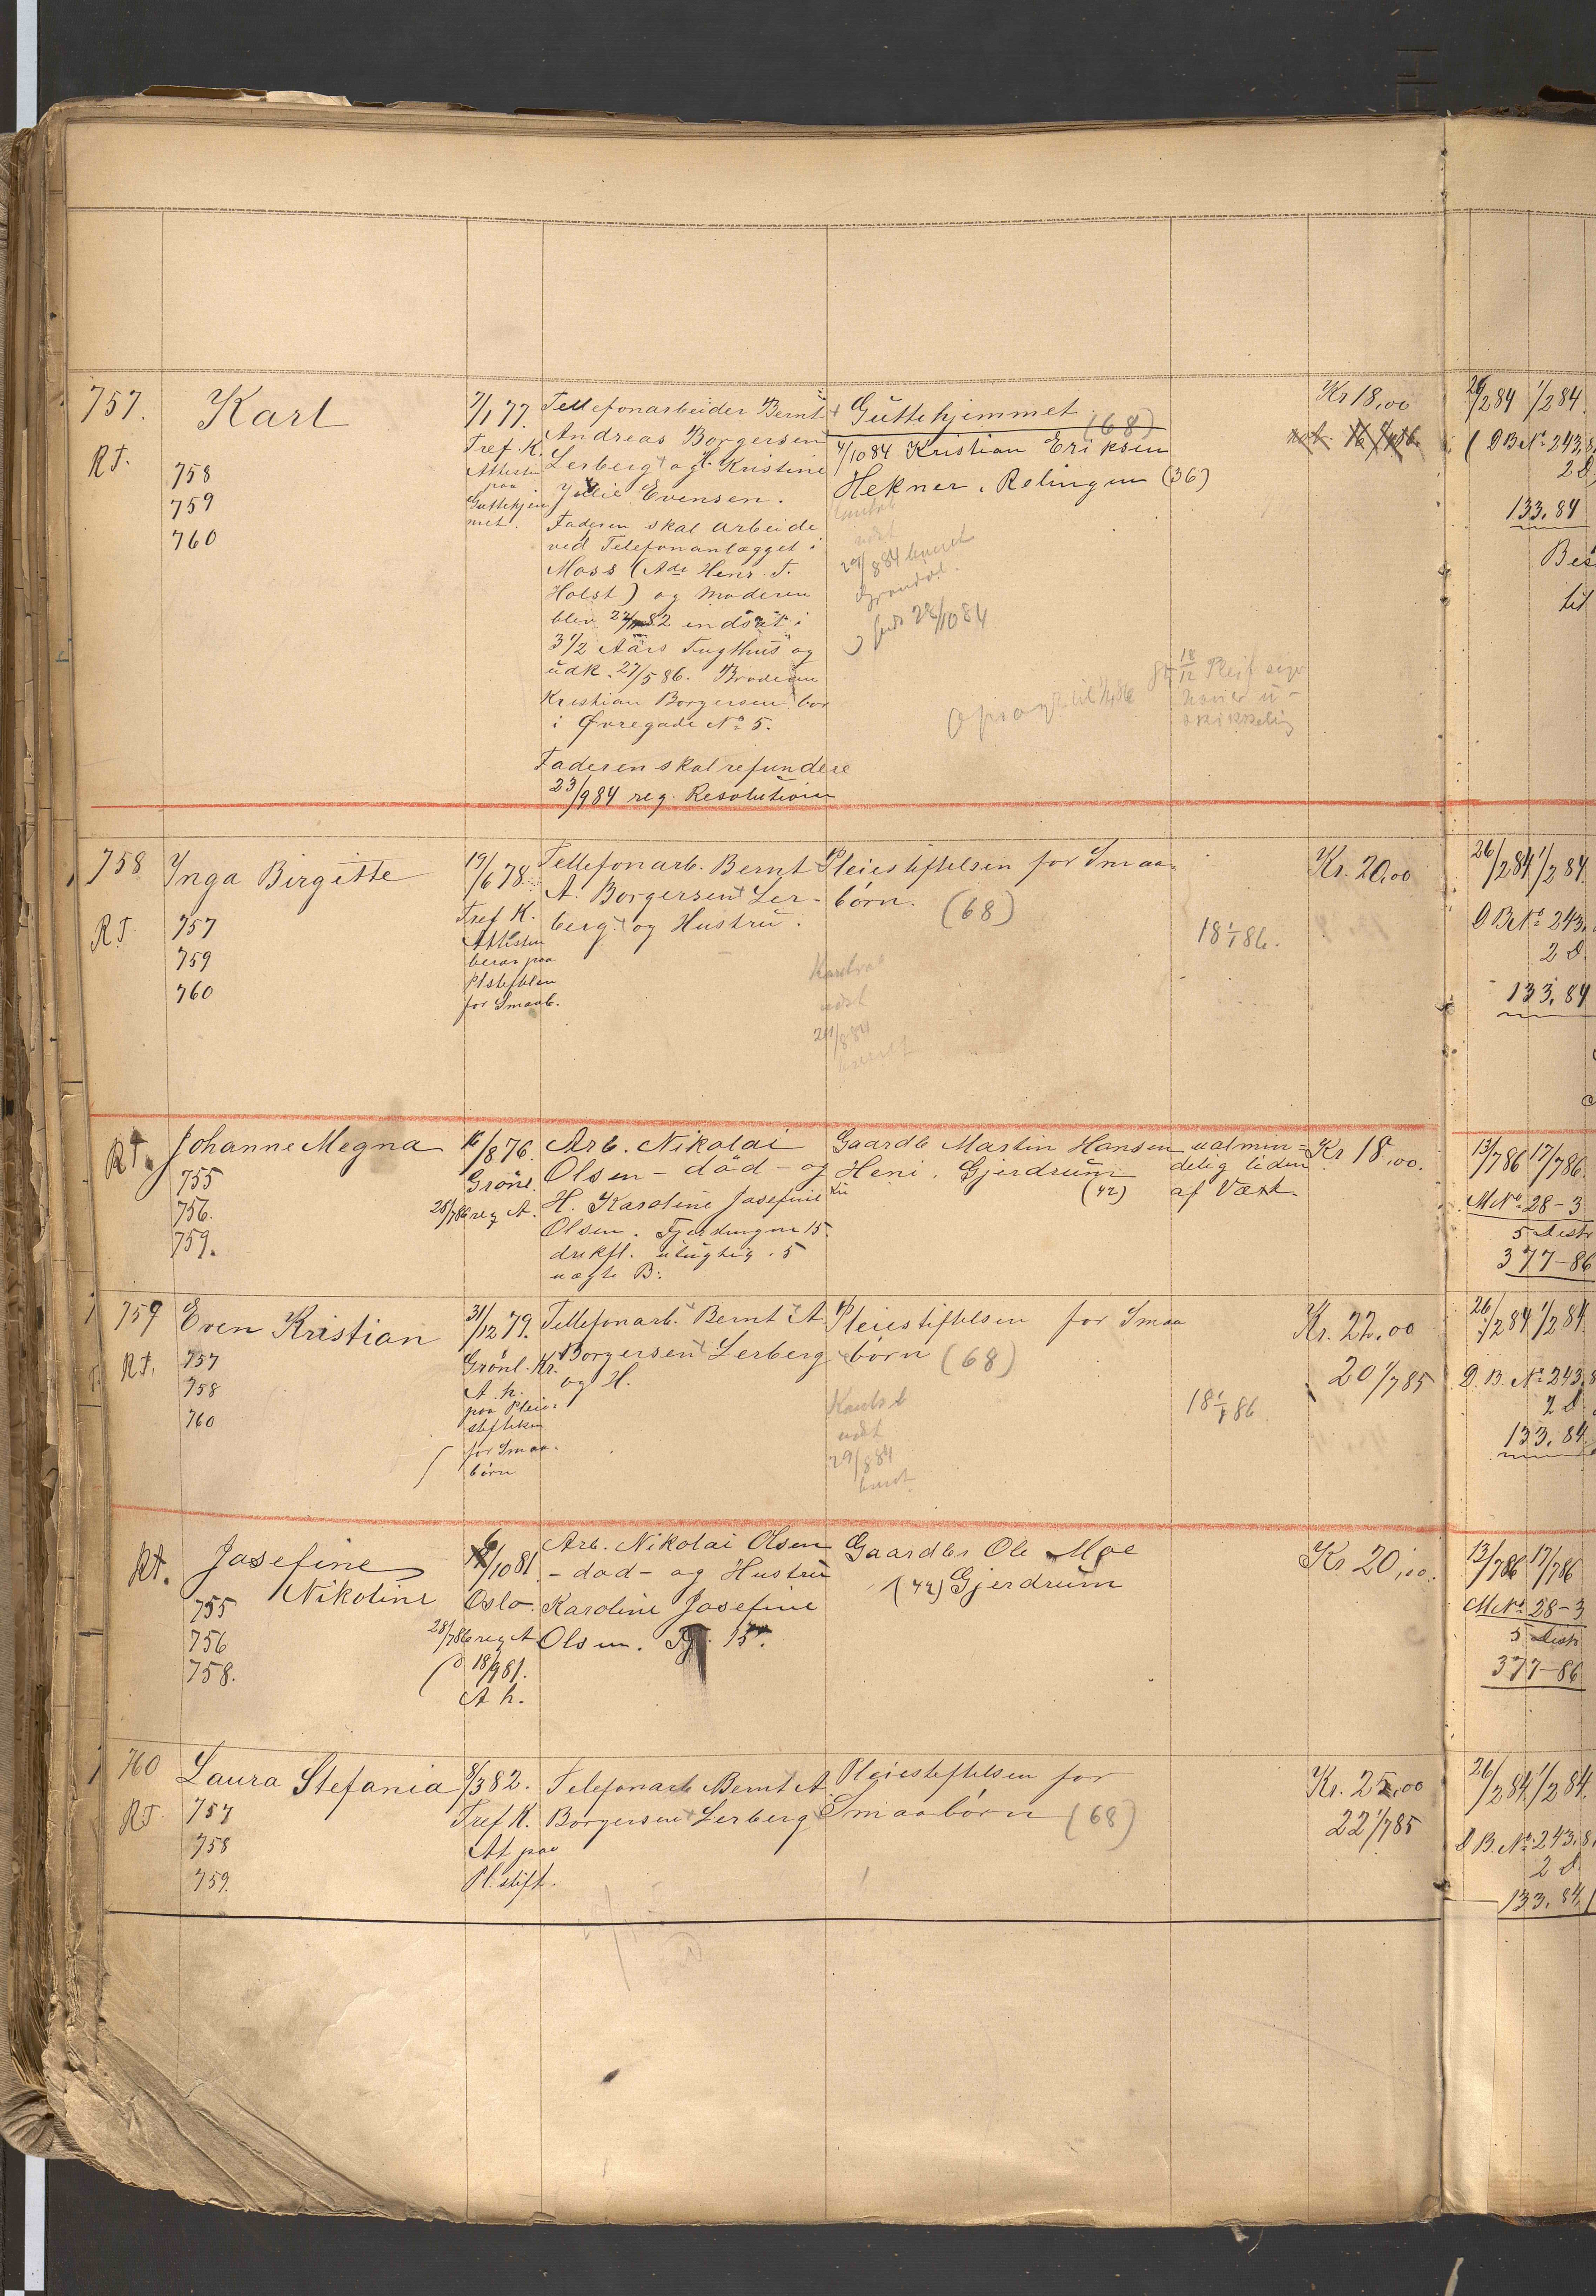 757.
Karl
7/1 77.
Tref. K.
Attestn
paa
Guttehjem
met.
RT.
758
759
760
Tellefonarbeider Bernt
Andreas Borgersen
Lerberg og H. Kristine
Julie Evensen.
Faderen skal arbeide
ved Telefonanlægget i
Moss (Adr Henr. T.
Holst) og Moderen
blev 22/11 82 indsat i
3 1/2 Aars Tugthus og
udk. 27/5 86. Broderen
Kristian Borgersen bor
i Øvregade No 5.
Faderen skal refundere
23/9 84 reg. Resolution
Guttehjemmet.
(68)
4/10 84 Kristian Eriksen
Hekner, Relingen (36)
udst
29/8 84
28/10 84
18/12
Kr 18,00
26/2 84 1/2 84.
( DB No 243,8
2 D
133. 84
Bes
til
758
Inga Birgitte
RT
757
759
760
19/6 78.
Tref K.
Attesten
beror paa
Plstiftlsen
for Smaab.
Tellefonarb. Bernt
A. Borgersen Ler-
berg og Hustru.
Pleiestiftelsen for Smaa-
børn. (68)
udst
29/8 84
18 1/1 86.
Kr. 20,00
26/2 84 1/2 84.
DB No 243.
2 D.
133. 84
RT.
Johanne Megna
755
756.
759.
16/8 76.
Grønl.
28/7 86 reg A.
Arb. Nikolai
Olsen - død - og
H. Karoline Josefine
Olsen. Fjerdingen 15.
drikf. udygtig. 5
uægte B:
Gaardb Martin Hansen
Heni, Gjerdrum
(42)
ualmin-
delig liden
af Væxt.
Kr 18,00.
13/7 86 17/7 86.
MNo 28-3
5 Distr
377-86
759
Even Kristian
RT.
757
758
760
31/12 79.
Grønl. Kr.
A. h.
paa Pleie-
stiftelsen
for Smaa-
børn
Tellefonarb. Bernt A
Borgersen Lerberg
og H.
Pleiestiftelsen for Smaa
børn (68)
udst
29/8 84
18 1/1 86.
Kr. 22,00
20 1/7 85
26/2 84 1/2 84
D. B. No 243.8
2 D.
133. 84.
RT.
Josefine
Nikoline
755
756
758.
6/10 81.
Oslo.
28/7 86 reg A
18/9 81.
A h.
Arb. Nikolai Olsen
- død - og Hustru
Karoline Josefine
Olsen. Fj. 15.
Gaardbr Ole Moe
(42) Gjerdrum
Kr 20,00.
13/7 86 17/7 86
MNo 28-3
5 Distr
377-86
760
Laura Stefania
RT.
757
758
759.
8/3 82.
Tref K.
At paa
Pl. stift.
Telefonarb Bernt A.
Borgersen Lerberg
Pleiestiftelsen for
Smaabørn (68)
Kr. 25,00
22 1/7 85
26/2 84. 1/2 84.
D B. No 243.8.
2 D
133. 84.